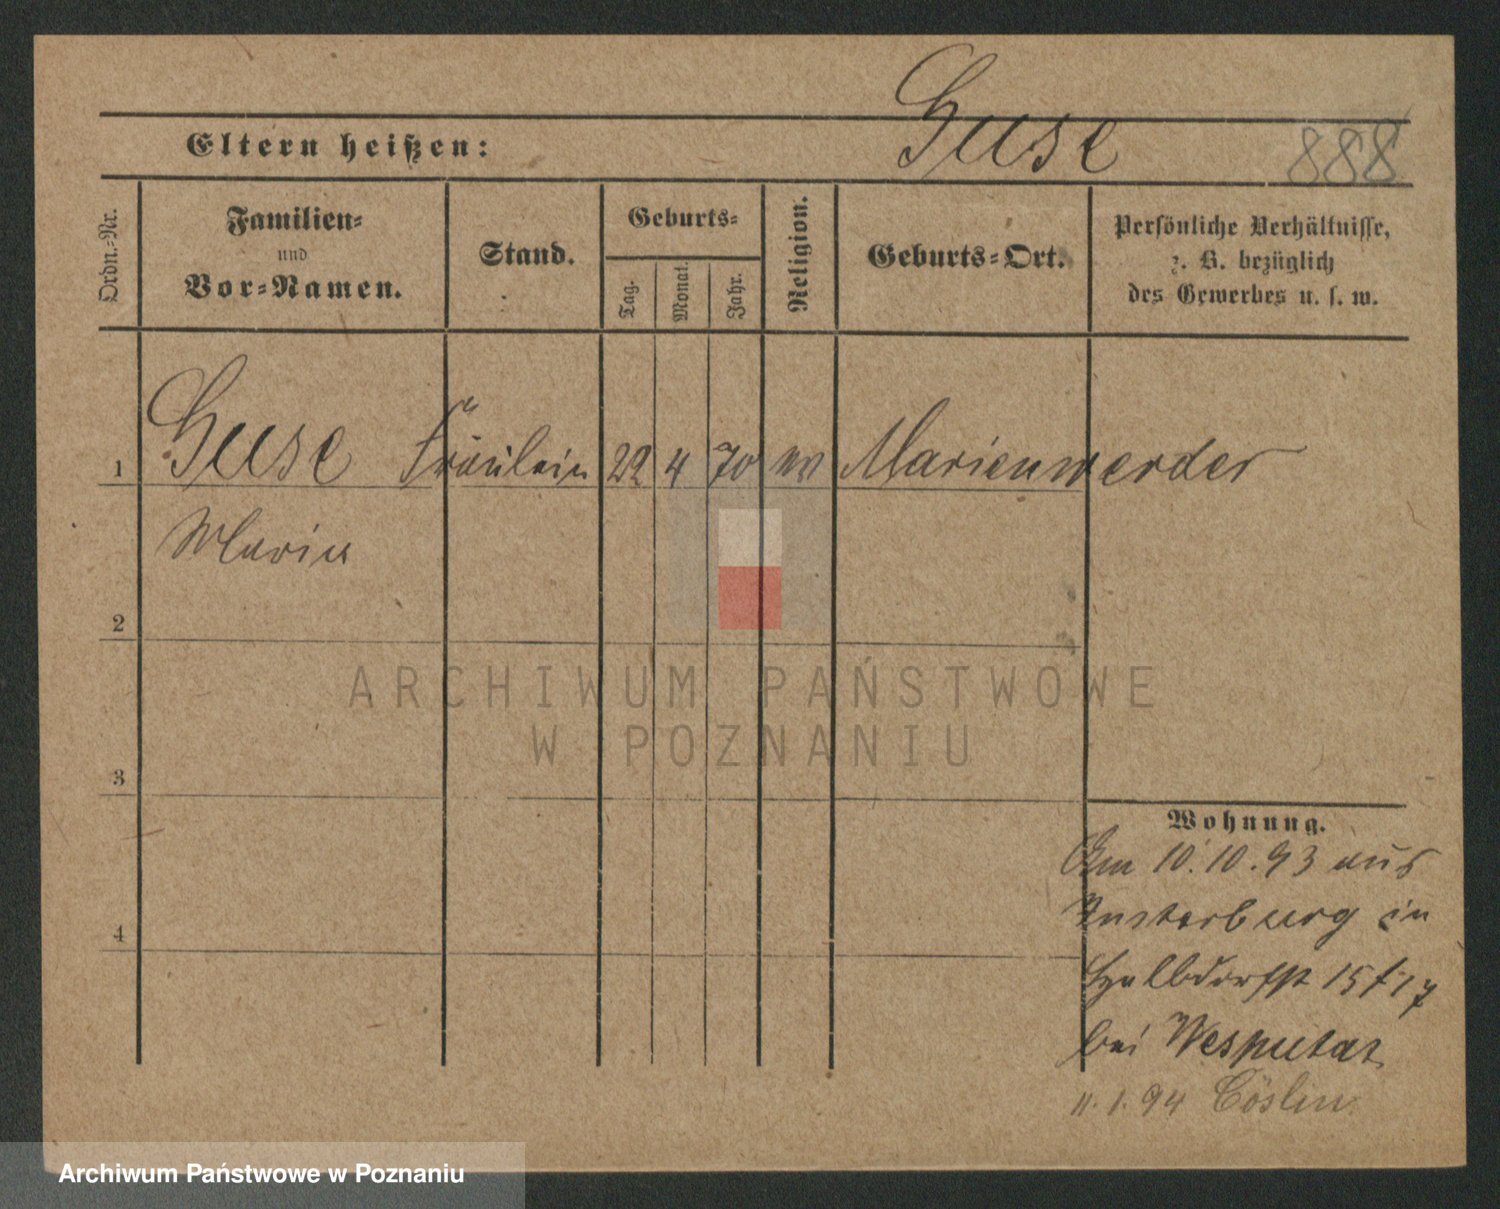 Guse
Eltern heißen: 888
Ordn.-Nr.
Familien-
und
Vor-Namen.
Stand.
Geburts-
Tag.
Monat.
Jahr.
Religion.
Geburts-Ort.
Persönliche Verhältnisse,
z. B. bezüglich
des Gewerbes u. s. w.
1 Guse Fräulein 22 4 70 Marienwerder
Maria
2
ARCHIWUM PAŃSTWOWE
W POZNANIU
3
Wohnung.
Am 10.10.93 aus
Insterburg in
Halbdorfst 15
4
bei Wesputat
11.1.94 Cöslin.
Archiwum Państwowe w Poznaniu